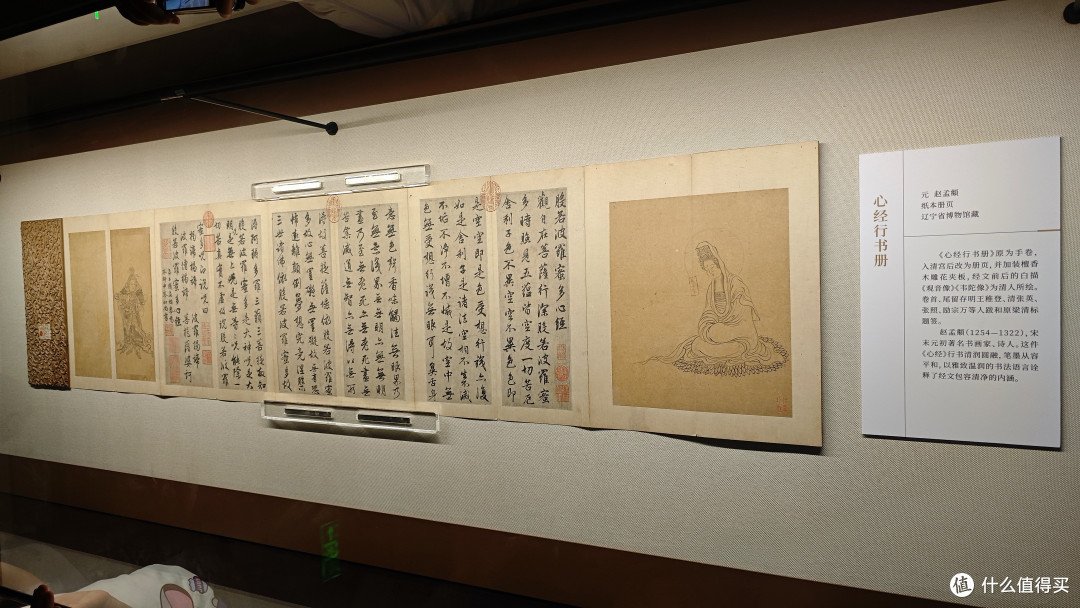 心经行书册
元 赵孟頫
纸本册页
辽宁省博物馆藏
《心经行书册》原为手卷，
入清宫后改为册页，并加装檀香
木雕花夹板，经文前后的白描
《观音像》《韦陀像》为清人所绘。
卷首、尾留存明王穉登、清张英、
张照、励宗万等人跋和原梁清标
题签。
赵孟頫（1254—1322），宋
末元初著名书画家、诗人。这件
《心经》行书清润圆融，笔墨从容
平和，以雅致温润的书法语言诠
释了经文包容清净的内涵。
般若波羅蜜多心經
觀自在菩薩行深般若波羅蜜
多時照見五蘊皆空度一切苦厄
舍利子色不異空空不異色色即
是空空即是色受想行識亦復
如是舍利子是諸法空相不生不滅
不垢不淨不增不減是故空中無
色無受想行識無眼耳鼻舌身
意無色聲香味觸法無眼界乃
至無意識界無無明亦無無明
盡乃至無老死亦無老死盡無
苦集滅道無智亦無得以無所
得故菩提薩埵依般若波羅蜜
多故心無罣礙無罣礙故無有恐
怖遠離顛倒夢想究竟涅槃
三世諸佛依般若波羅蜜多故
得阿耨多羅三藐三菩提故知
般若波羅蜜多是大神咒是大
明咒是無上咒是無等等咒能除
一切苦真實不虛故說般若波羅
蜜多咒即說咒曰
揭諦揭諦 波羅揭諦
波羅僧揭諦 菩提薩婆訶
般若波羅蜜多心經
值 什么值得买